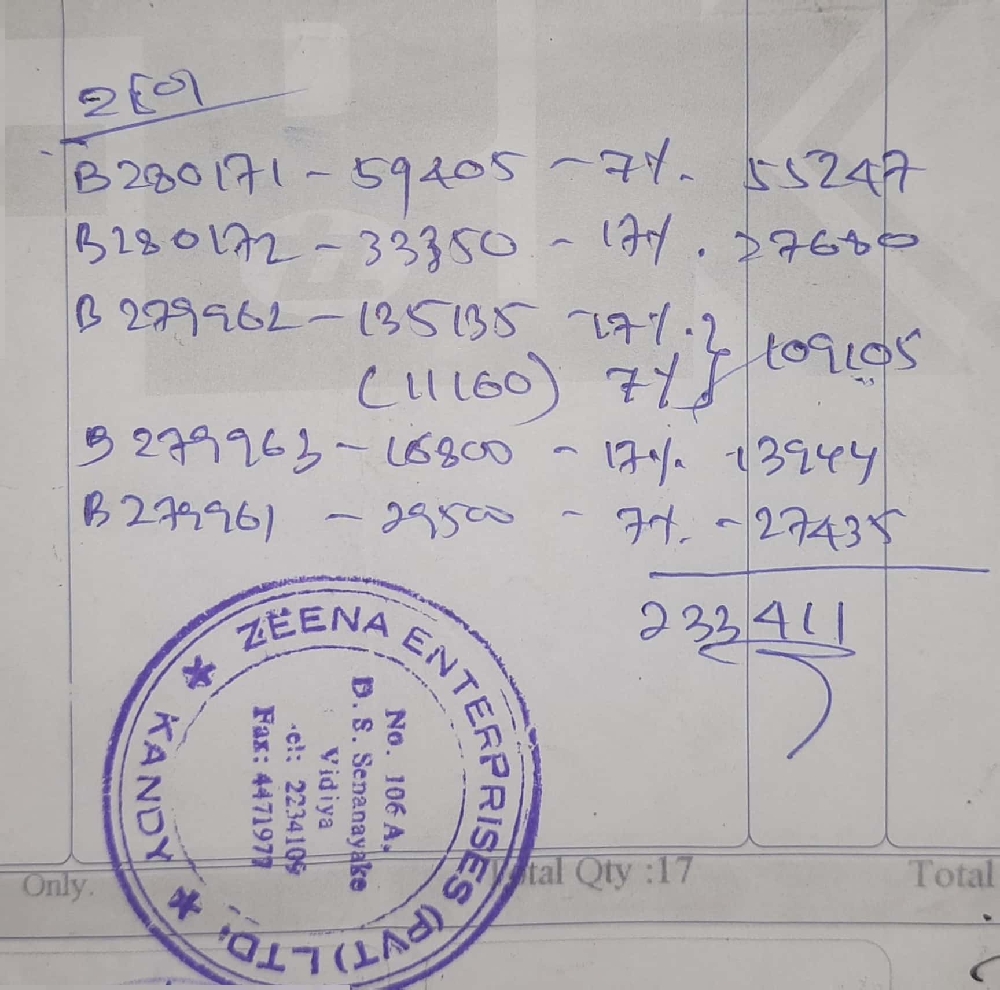 B280171 - 59405 - 7%. 55247
B280172 - 33350 - 17%. 27680
B279962 - 135135 - 17%.
(11160) 7% } 109105
B279963 - 16800 - 17%. 13944
B279961 - 29500 - 7%. - 27435
233411
ZEENA ENTERPRISES (PVT) LTD.
* KANDY *
No. 106 A,
D. S. Senanayake
Vidiya
Fax: 4471977
Only.
Qty :17
Total